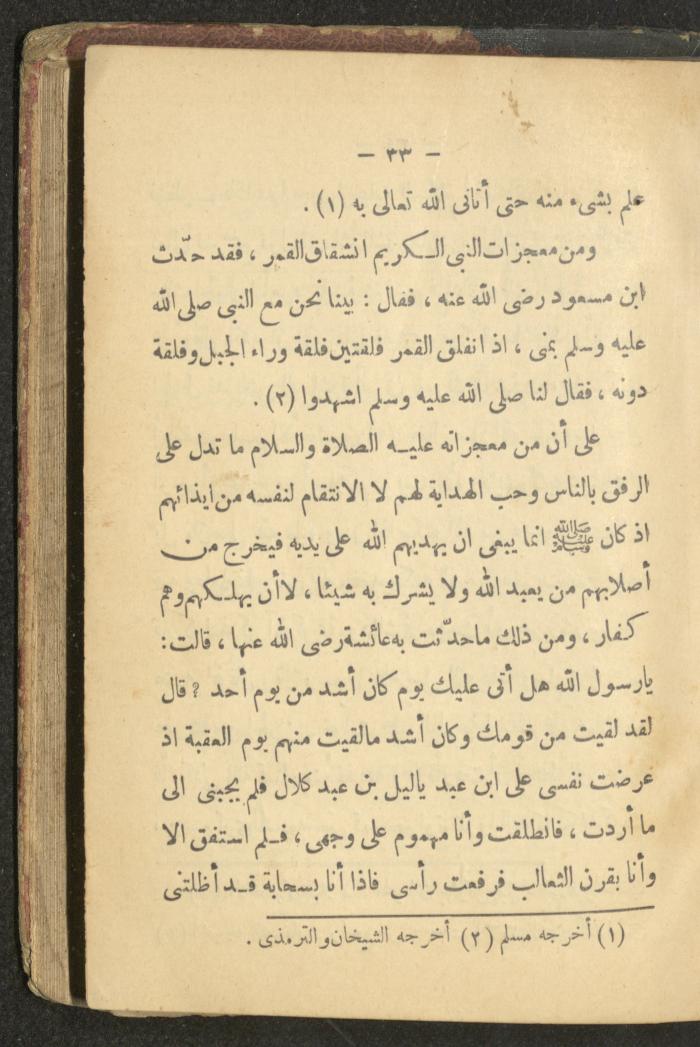 — ٣٣ —
علم بشىء منه حتى أتانى الله تعالى به (١) .
ومن معجزات النبى الكريم انشقاق القمر ، فقد حدّث
ابن مسعود رضى الله عنه ، فقال : بينا نحن مع النبى صلى الله
عليه وسلم بمنى ، اذ انفلق القمر فلقتين فلقة وراء الجبل وفلقة
دونه ، فقال لنا صلى الله عليه وسلم اشهدوا (٢) .
على أن من معجزاته عليه الصلاة والسلام ما تدل على
الرفق بالناس وحب الهداية لهم لا الانتقام لنفسه من ايذائهم
اذ كان ﷺ انما يبغى ان يهديهم الله على يديه فيخرج من
أصلابهم من يعبد الله ولا يشرك به شيئا ، لا أن يهلكهم وهم
كفار ، ومن ذلك ما حدّثت به عائشة رضى الله عنها ، قالت :
يارسول الله هل أتى عليك يوم كان أشد من يوم أحد ؟ قال
لقد لقيت من قومك وكان أشد مالقيت منهم يوم العقبة اذ
عرضت نفسى على ابن عبد ياليل بن عبد كلال فلم يجبنى الى
ما أردت ، فانطلقت وأنا مهموم على وجهى ، فلم استفق الا
وأنا بقرن الثعالب فرفعت رأسى فاذا أنا بسحابة قد أظلتنى
(١) أخرجه مسلم (٢) أخرجه الشيخان والترمذى .